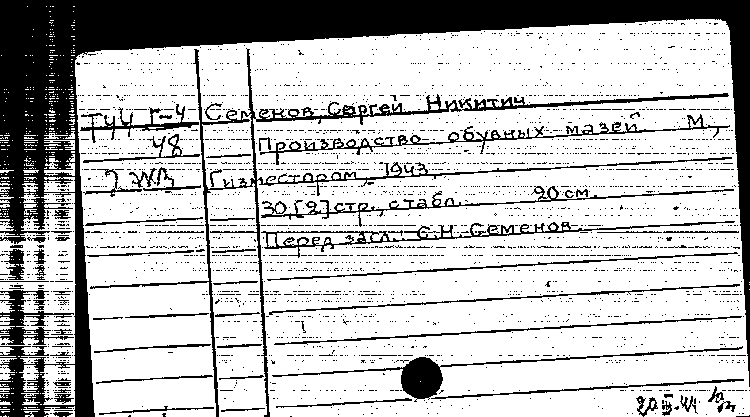 Г-4 Семенов, Сергей Никитич
48 Производство обувных мазей М.,
Гизместпром, 1943.
30,[2] стр., с табл. 20 см.
Перед загл.: С.Н. Семенов.